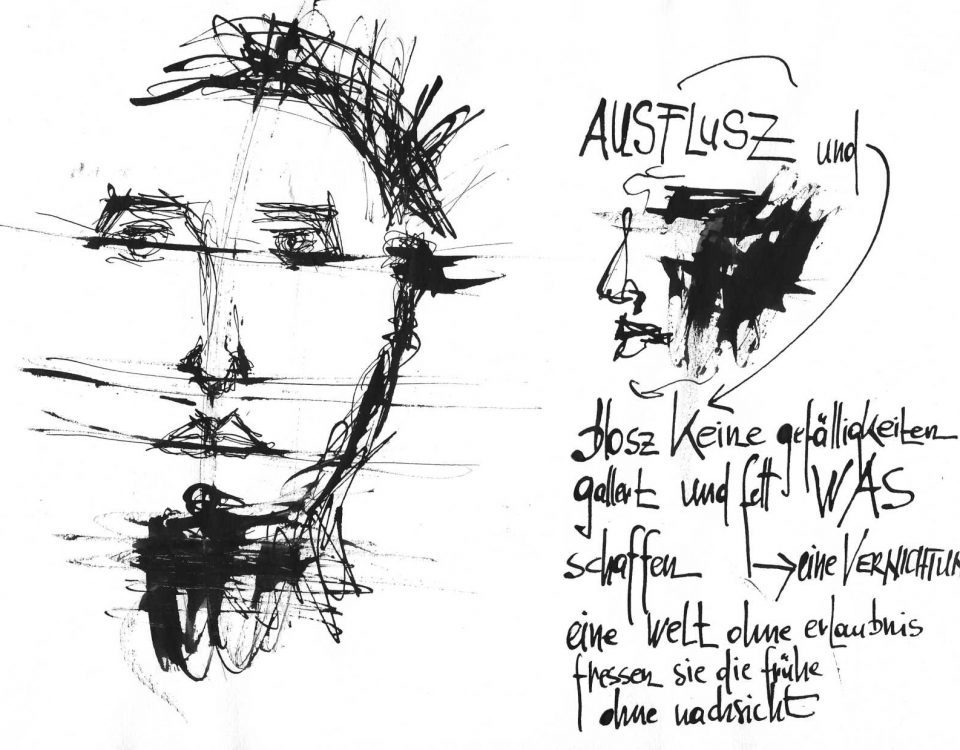 AUSFLUSZ und
blosz keine gefälligkeiten
gallert und fett WAS
schaffen → eine VERNICHTUN
eine welt ohne erlaubnis
fressen sie die frühe
ohne nachsicht